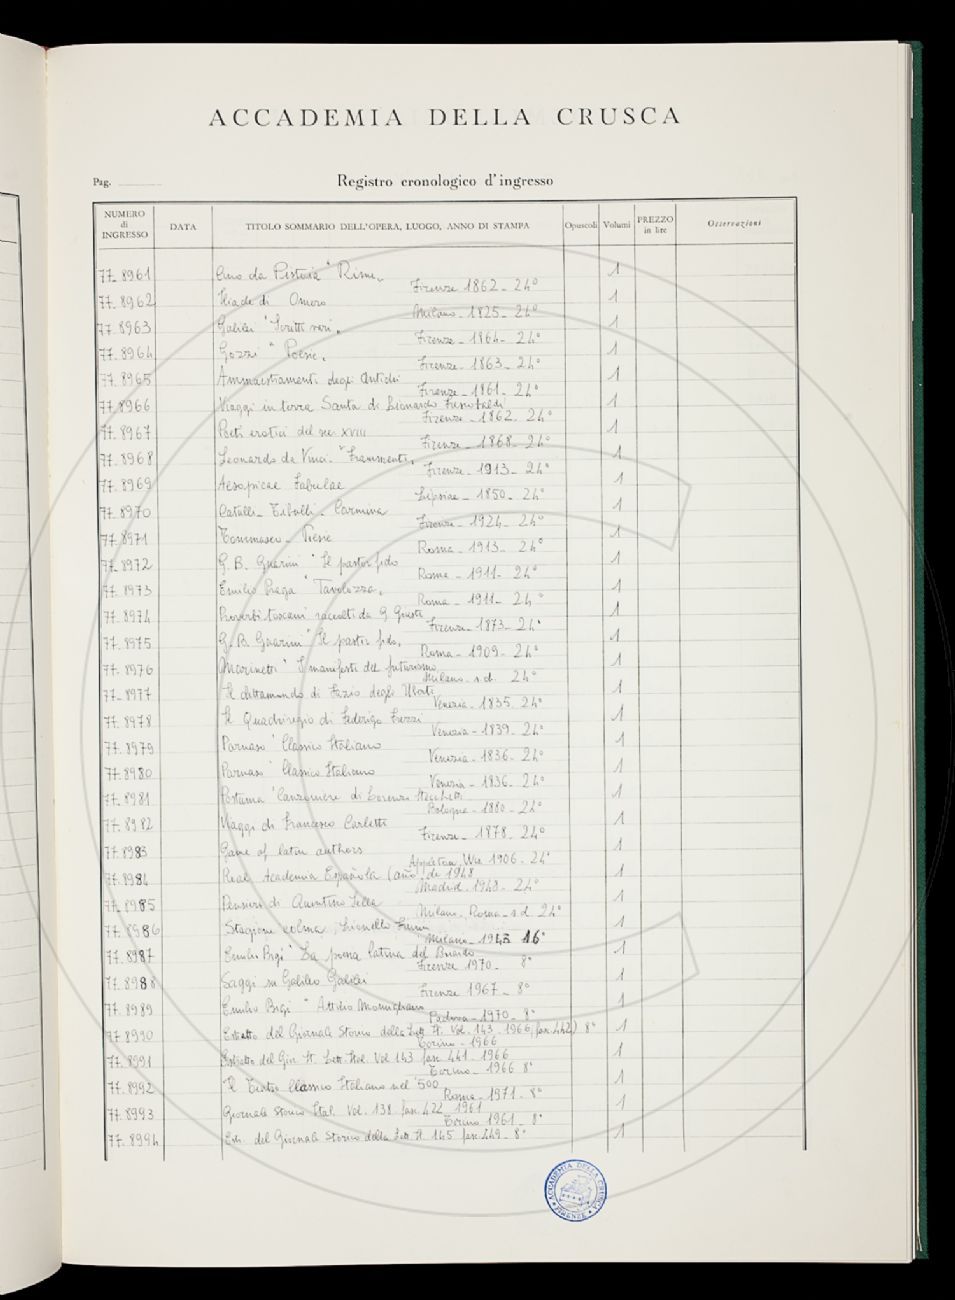 ACCADEMIA DELLA CRUSCA
Pag.
Registro cronologico d'ingresso
NUMERO di INGRESSO DATA TITOLO SOMMARIO DELL'OPERA, LUOGO, ANNO DI STAMPA Opuscoli Volumi PREZZO in lire Osservazioni
77-8961 Cino da Pistoia "Rime" 1
Firenze 1862 - 24°
77-8962 Iliade di Omero 1
Milano - 1825 - 24°
77-8963 Galilei "Scritti vari" 1
Firenze - 1864 - 24°
77-8964 Gozzi "Poesie" 1
Firenze - 1863 - 24°
77-8965 Ammaestramenti degli Antichi 1
Firenze - 1861 - 24°
77-8966 Viaggi in terra Santa di Lionardo Frescobaldi 1
Firenze - 1862 - 24°
77-8967 Poeti erotici del sec XVIII 1
Firenze - 1868 - 24°
77-8968 Leonardo da Vinci "Frammenti" 1
Firenze - 1913 - 24°
77-8969 Aesopicae Fabulae 1
Lipsiae - 1850 - 24°
77-8970 Catulli - Tibulli - Carmina 1
Firenze - 1924 - 24°
77-8971 Tommaseo - Poesie 1
Roma - 1913 - 24°
77-8972 G.B. Guarini "Il pastor fido 1
Roma - 1911 - 24°
77-8973 Emilio Praga "Tavolozza" 1
Roma - 1911 - 24°
77-8974 Proverbi toscani raccolti da G. Giusti 1
Firenze - 1873 - 24°
77-8975 G.B. Guarini "Il pastor fido" 1
Roma - 1909 - 24°
77-8976 Marinetti "I manifesti del futurismo 1
Milano - s.d. 24°
77-8977 Il dittamondo di Fazio degli Uberti 1
Venezia - 1835 - 24°
77-8978 Il Quadriregio di Federigo Frezzi 1
Venezia - 1839 - 24°
77-8979 Parnaso Classico Italiano 1
Venezia - 1836 - 24°
77-8980 Parnaso Classico Italiano 1
Venezia - 1836 - 24°
77-8981 Postuma "Canzoniere di Lorenzo Stecchetti 1
Bologna - 1880 - 24°
77-8982 Viaggi di Francesco Carletti 1
Firenze - 1878 - 24°
77-8983 Game of latin authors 1
1906 - 24°
77-8984 Real Academia Española (año de 1948 1
Madrid - 1948 - 24°
77-8985 Pensieri di Quintino Sella 1
Milano - Roma - s.d. 24°
77-8986 Stagione colma, Lionello Fiumi 1
Milano - 1943 16°
77-8987 Emilio Bigi "La poesia latina del Boiardo 1
Firenze 1970 - 8°
77-8988 Saggi su Galileo Galilei 1
Firenze 1967 - 8°
77-8989 Emilio Bigi "Attilio Momigliano 1
Padova - 1970 - 8°
77-8990 Estratto del Giornale Storico della Lett. It. Vol. 143 - 1966 (fasc. 442) 8° 1
Torino - 1966
77-8991 Estratto del Gior. St. Lett. Ital. Vol 143 fasc 441 - 1966 1
Torino - 1966 8°
77-8992 Il Teatro Classico Italiano nel '500 1
Roma - 1971 - 8°
77-8993 Giornale Storico Ital. Vol. 138 fasc. 422 1961 1
Torino 1961 - 8°
77-8994 Estr. del Giornale Storico della Lett. It. 145 fasc. 449 - 8° 1
ACCADEMIA DELLA CRUSCA
FIRENZE